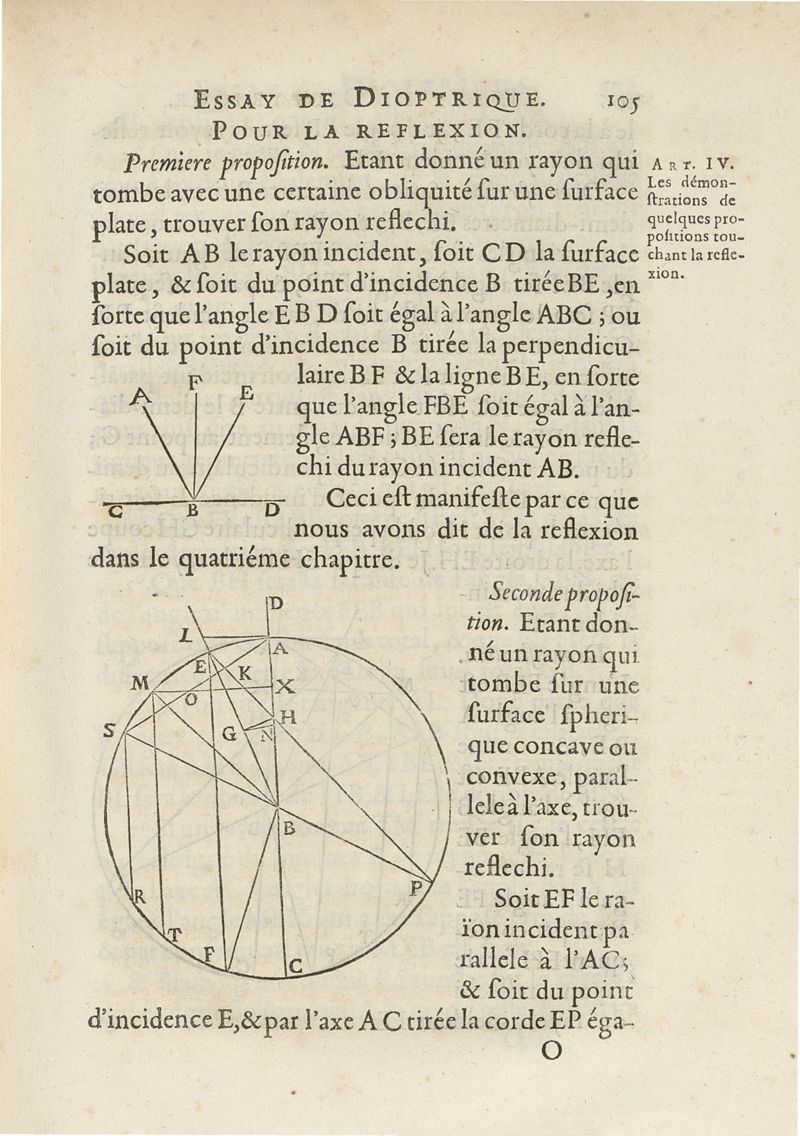 ESSAY DE DIOPTRIQUE. 105
POUR LA REFLEXION.
Premiere propoſition. Etant donné un rayon qui
tombe avec une certaine obliquité ſur une ſurface
plate, trouver ſon rayon reflechi.
Soit AB le rayon incident, ſoit CD la ſurface
plate, & ſoit du point d'incidence B tirée BE, en
ſorte que l'angle EBD ſoit égal à l'angle ABC; ou
ſoit du point d'incidence B tirée la perpendicu-
laire BF & la ligne BE, en ſorte
que l'angle FBE ſoit égal à l'an-
gle ABF; BE ſera le rayon refle-
chi du rayon incident AB.
Ceci eſt manifeſte par ce que
nous avons dit de la reflexion
dans le quatriéme chapitre.
ART. IV.
Les démon-
ſtrations de
quelques pro-
poſitions tou-
chant la refle-
xion.
A F E
C B D
Seconde propoſi-
tion. Etant don-
né un rayon qui
tombe ſur une
ſurface ſpheri-
que concave ou
convexe, paral-
lele à l'axe, trou-
ver ſon rayon
reflechi.
Soit EF le ra-
ïon incident pa
rallele à l'AC;
& ſoit du point
d'incidence E, & par l'axe AC tirée la corde EP éga-
D
L A
E K
M O X
S G N H
B
P
R
T
F C
O